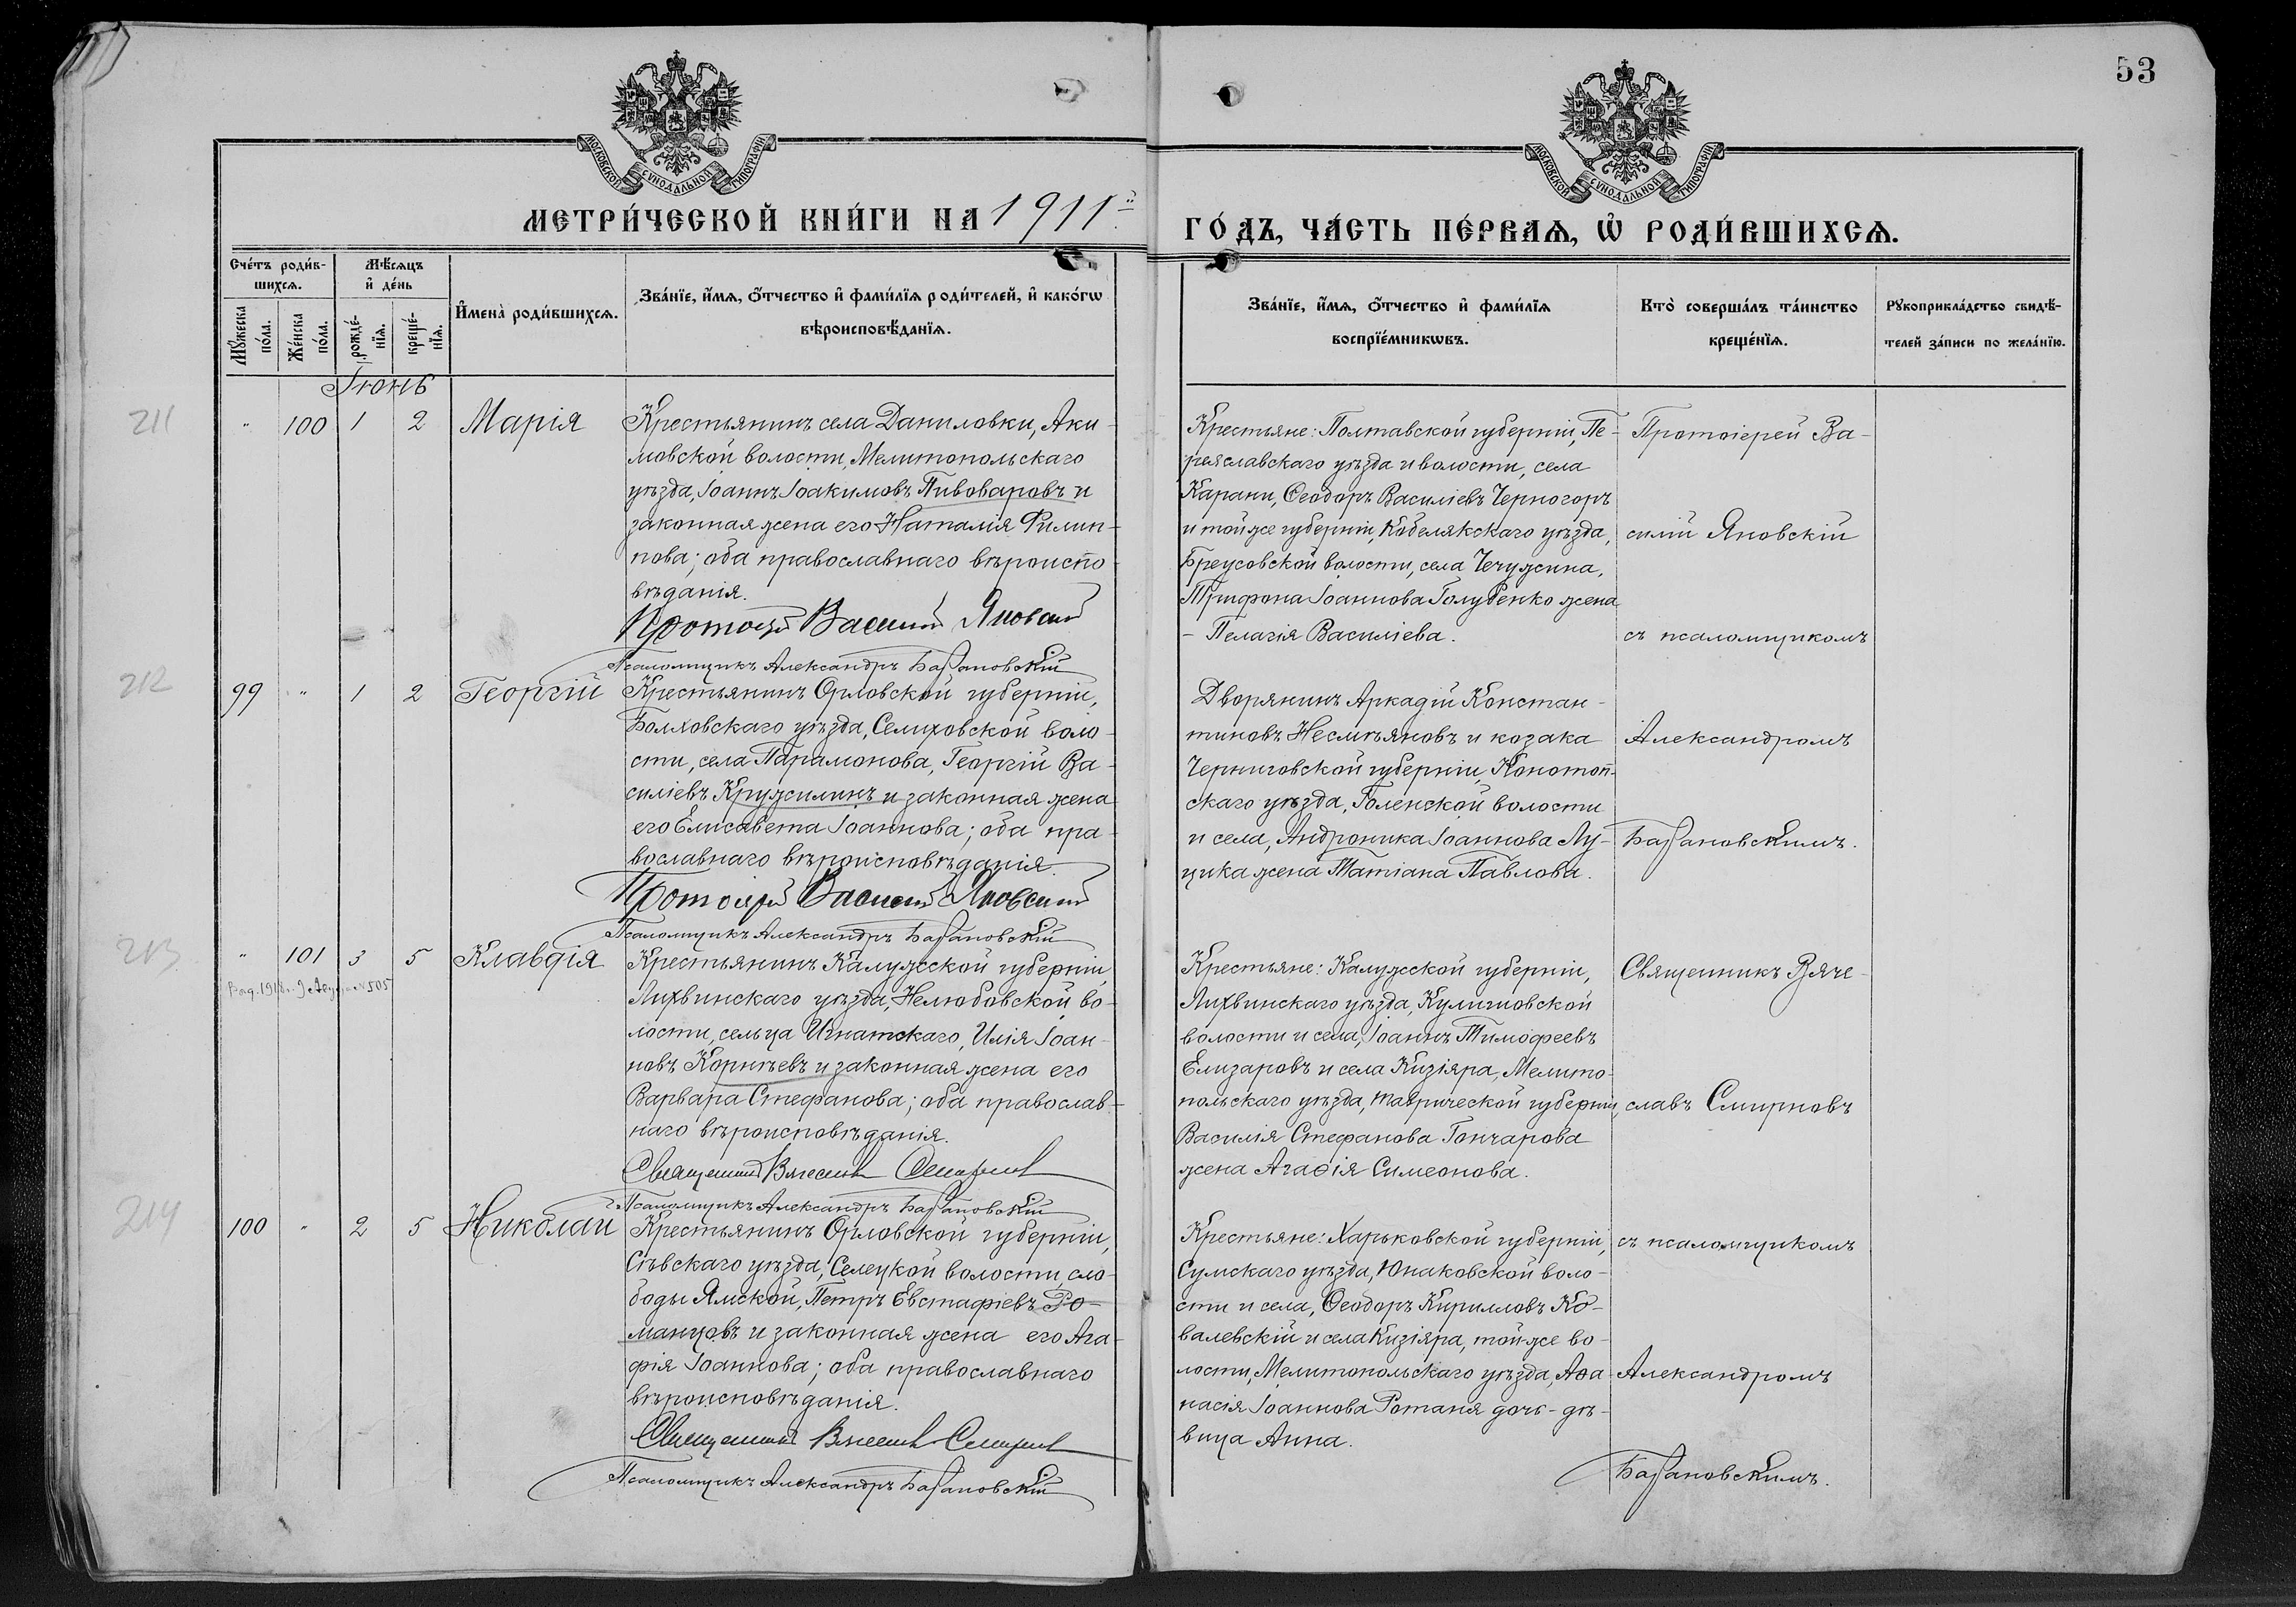 53
МОСКОВСКОЙ СѴНОДАЛЬНОЙ ТИПОГРАФІИ
МОСКОВСКОЙ СѴНОДАЛЬНОЙ ТИПОГРАФІИ
МЕТРИ́ЧЕСКОЙ КНИ́ГИ НА 1911й
ГО́ДЪ, ЧА́СТЬ ПЕ́РВАѦ, Ѡ҆ РОДИ́ВШИХСѦ.
Сче́тъ роди́в-
шихсѧ.
Мꙋ́жеска
по́ла.
Же́нска
по́ла.
Мѣ́сѧцъ
и҆ де́нь
рожде́-
нїѧ.
креще́-
нїѧ.
И҆мена̀ роди́вшихсѧ.
Зва́нїе, и҆́мѧ, ѻ҆́тчество и҆ фами́лїѧ роди́телей, и҆ како́гѡ
вѣроисповѣ́данїѧ.
Зва́нїе, и҆́мѧ, ѻ҆́тчество и҆ фами́лїѧ
воспрїе́мникѡвъ.
Кто̀ соверша́лъ та́инство
креще́нїѧ.
Рꙋкоприкла́дство свидѣ́-
телей за́писи по жела́нїю.
Іюнь
211
" 100 1 2 Марія
Крестьянинъ села Даниловки, Аки-
мовской волости, Мелитопольскаго
уѣзда, Іоаннъ Іоакимовъ Пивоваровъ и
законная жена его Наталія Филип-
пова; оба православнаго вѣроиспо-
вѣданія.
Протоіерей Василій Яновскій
Псаломщикъ Александръ Барановскій
Крестьяне: Полтавской губерніи, Пе-
реяславскаго уѣзда и волости, села
Карани, Ѳеодоръ Василіевъ Черногоръ
и той же губерніи, Кобелякскаго уѣзда,
Бреусовской волости, села Чечужина,
Трифона Іоаннова Голубенко жена
- Пелагія Василіева.
Протоіерей Ва-
силій Яновскій
съ псаломщикомъ
212
99 " 1 2 Георгій
Крестьянинъ Орловской губерніи,
Болховскаго уѣзда, Селиховской воло-
сти, села Парамонова, Георгій Ва-
силіевъ Кружилинъ и законная жена
его Елисавета Іоаннова; оба пра-
вославнаго вѣроисповѣданія.
Протоіерей Василій Яновскій
Псаломщикъ Александръ Барановскій
Дворянинъ Аркадій Констан-
тиновъ Несмѣяновъ и козака
Черниговской губерніи, Конотоп-
скаго уѣзда, Голенской волости
и села, Андроника Іоаннова Лу-
цика жена Татіана Павлова.
Александромъ
Барановскимъ.
213
" 101 3 5 Клавдія
Выд. 1918 г. 9 Авгу № 505
Крестьянинъ Калужской губерніи
Лихвинскаго уѣзда, Нелюбовской во-
лости, сельца Игнатскаго, Илія Іоан-
новъ Корнѣевъ и законная жена его
Варвара Стефанова; оба православ-
наго вѣроисповѣданія.
Священникъ Вячеславъ Смирновъ
Псаломщикъ Александръ Барановскій
Крестьяне: Калужской губерніи,
Лихвинскаго уѣзда, Кулиговской
волости и села, Іоаннъ Тимофеевъ
Елизаровъ и села Кизіяра, Мелито-
польскаго уѣзда, Таврической губерніи,
Василія Стефанова Гончарова
жена Агаѳія Симеонова.
Священникъ Вяче-
славъ Смирновъ
214
100 " 2 5 Николай
Крестьянинъ Орловской губерніи,
Сѣвскаго уѣзда, Селецкой волости, сло-
боды Ямской, Петръ Евстафіевъ Ро-
манцовъ и законная жена его Ага-
фія Іоаннова; оба православнаго
вѣроисповѣданія.
Священникъ Вячеславъ Смирновъ
Псаломщикъ Александръ Барановскій
Крестьяне: Харьковской губерніи,
Сумскаго уѣзда, Юнаковской воло-
сти и села, Ѳеодоръ Кирилловъ Ко-
валевскій и села Кизіяра, той же во-
лости, Мелитопольскаго уѣзда, Аѳа-
насія Іоаннова Ротаня дочь - дѣ-
вица Анна.
съ псаломщикомъ
Александромъ
Барановскимъ.